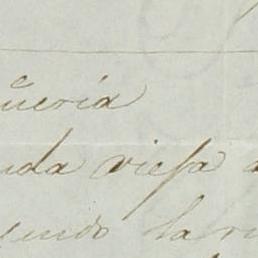 ñueria
uda viesa a
endo la ri